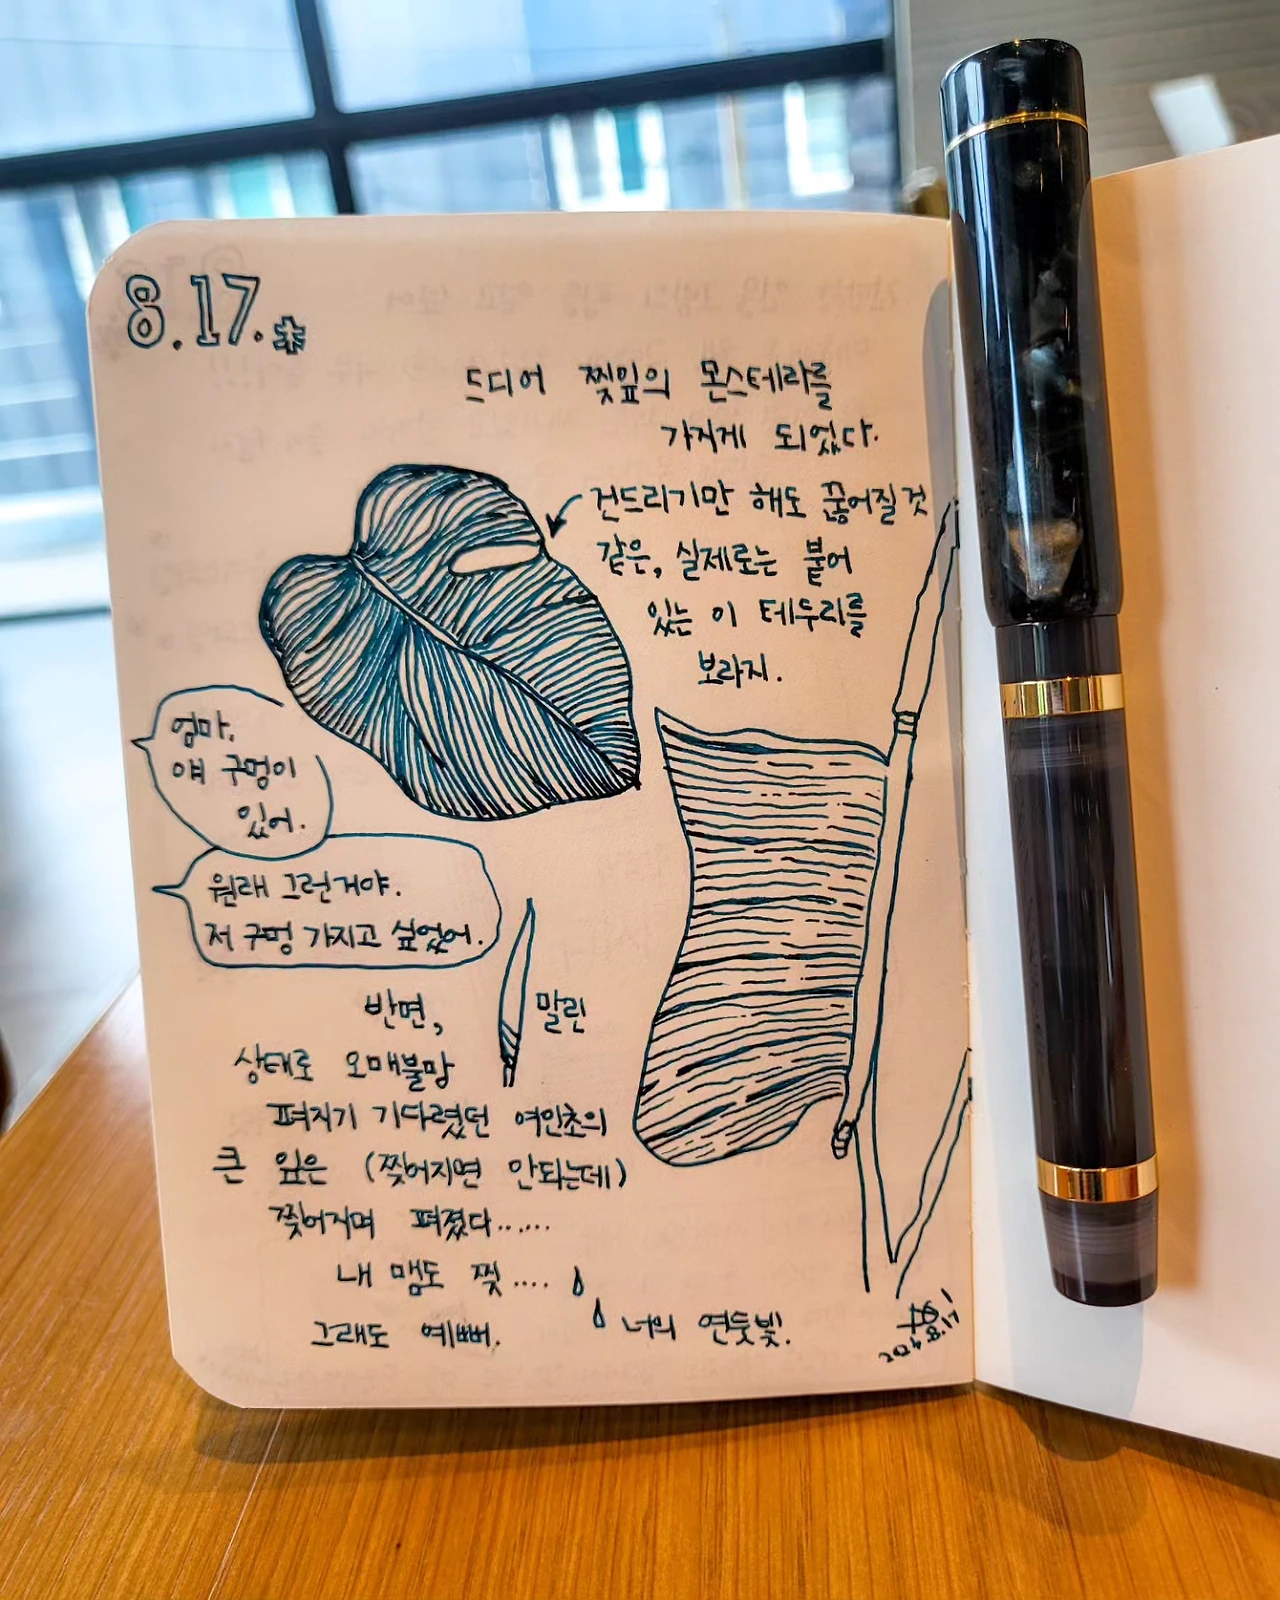 8.17.
드디어 찢잎의 몬스테라를
가지게 되었다.
건드리기만 해도 끊어질 것
같은, 실제로는 붙어
있는 이 테두리를
보라지.
엄마,
얘 구멍이
있어.
원래 그런거야.
저 구멍 가지고 싶었어.
반면, 말린
상태로 오매불망
펴지기 기다렸던 여인초의
큰 잎은 (찢어지면 안되는데)
찢어지며 펴졌다......
내 맴도 찢....
그래도 예뻐. 너의 연둣빛.
8.17